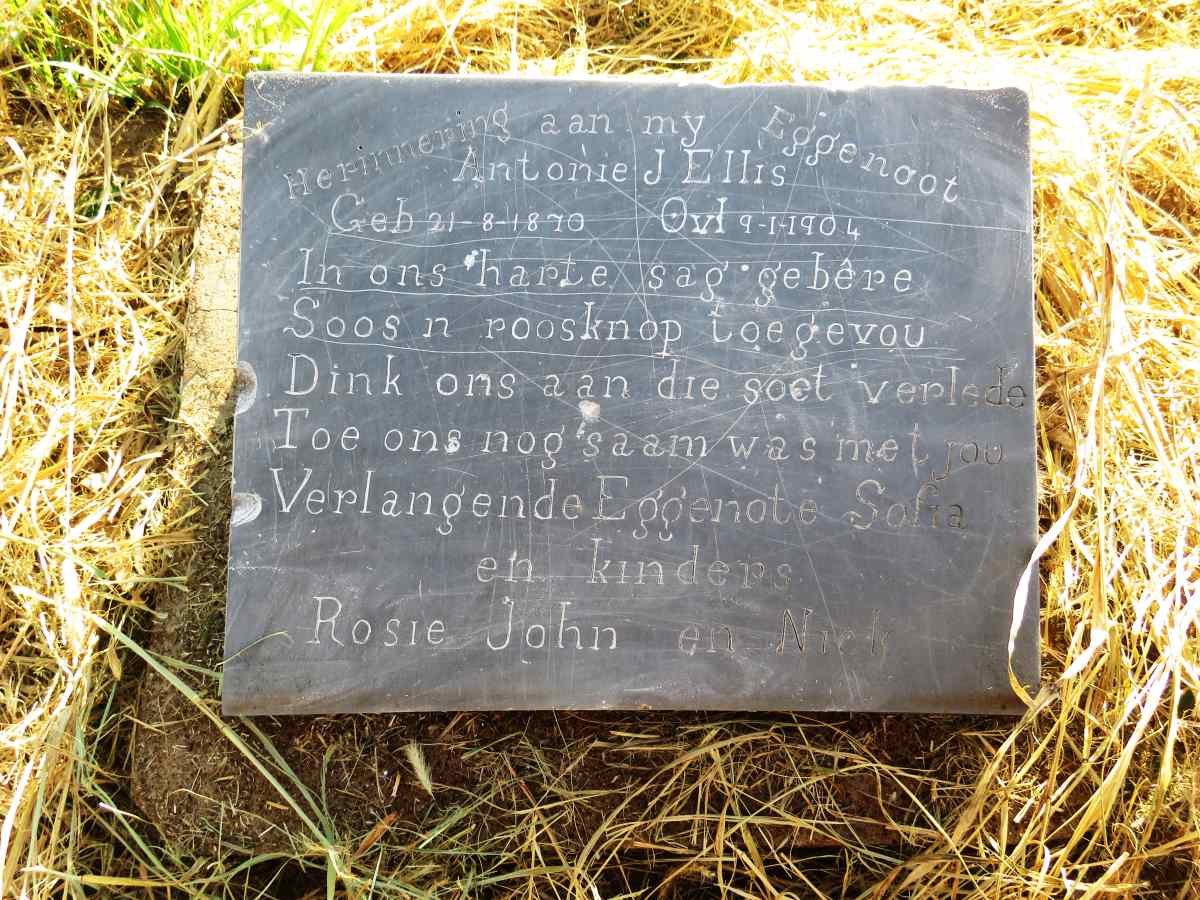 Herinnering aan my Eggenoot
Antonie J Ellis
Geb 21-8-1870 Ovl 9-1-1904
In ons harte sag gebêre
Soos n roosknop toegevou
Dink ons aan die soet verlede
Toe ons nog saam was met jou
Verlangende Eggenote Sofia
en kinders
Rosie John en Nick